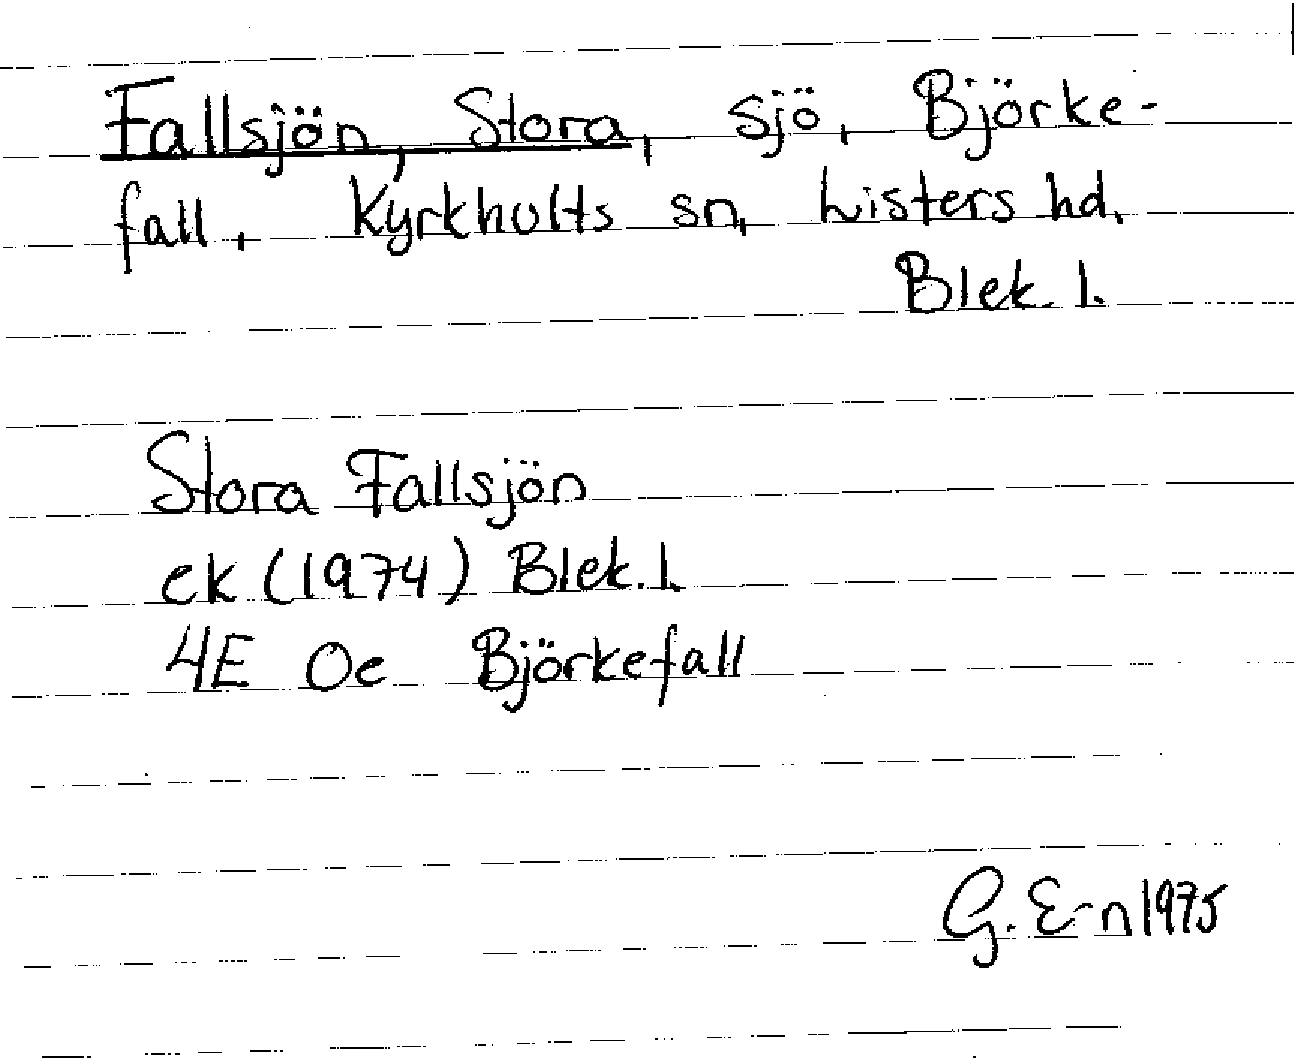 Fallsjön, Stora, sjö, Björke-
fall, Kyrkhults sn, Listers hd.
Blek. l.
Stora Fallsjön
ek (1974) Blek. l.
4E Oe Björkefall
G. E-n 1975